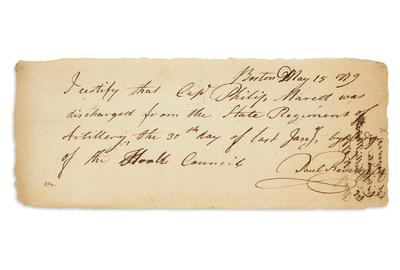 Boston May 15 1779
I certify that Capt Philip Marett was
discharged from the State Regiment of
Artillery, the 30th day of last Jany, by order
of the Honble Council
Paul Revere